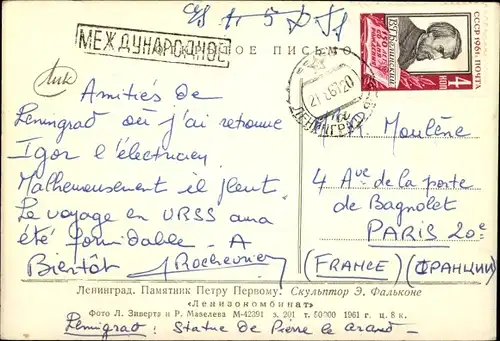 МЕЖДУНАРОДНОЕ
ПИСЬМО
СССР 1961 ПОЧТА
4 КОП
ЛЕНИНГРАД
Amitiés de
Leningrad où j'ai retrouvé
Igor l'électricien.
Malheureusement il pleut.
Le voyage en URSS aura
été formidable. A
Bientôt
M. Moulène
4 Ave de la porte
de Bagnolet
PARIS 20e
(FRANCE) (ФРАНЦИЯ)
Ленинград. Памятник Петру Первому. Скульптор Э. Фальконе
«Ленизокомбинат»
Фото Л. Зиверта и Р. Мазелева М-42391 з. 201 т. 50000 1961 г. ц. 8 к.
Leningrad: Statue de Pierre le Grand-